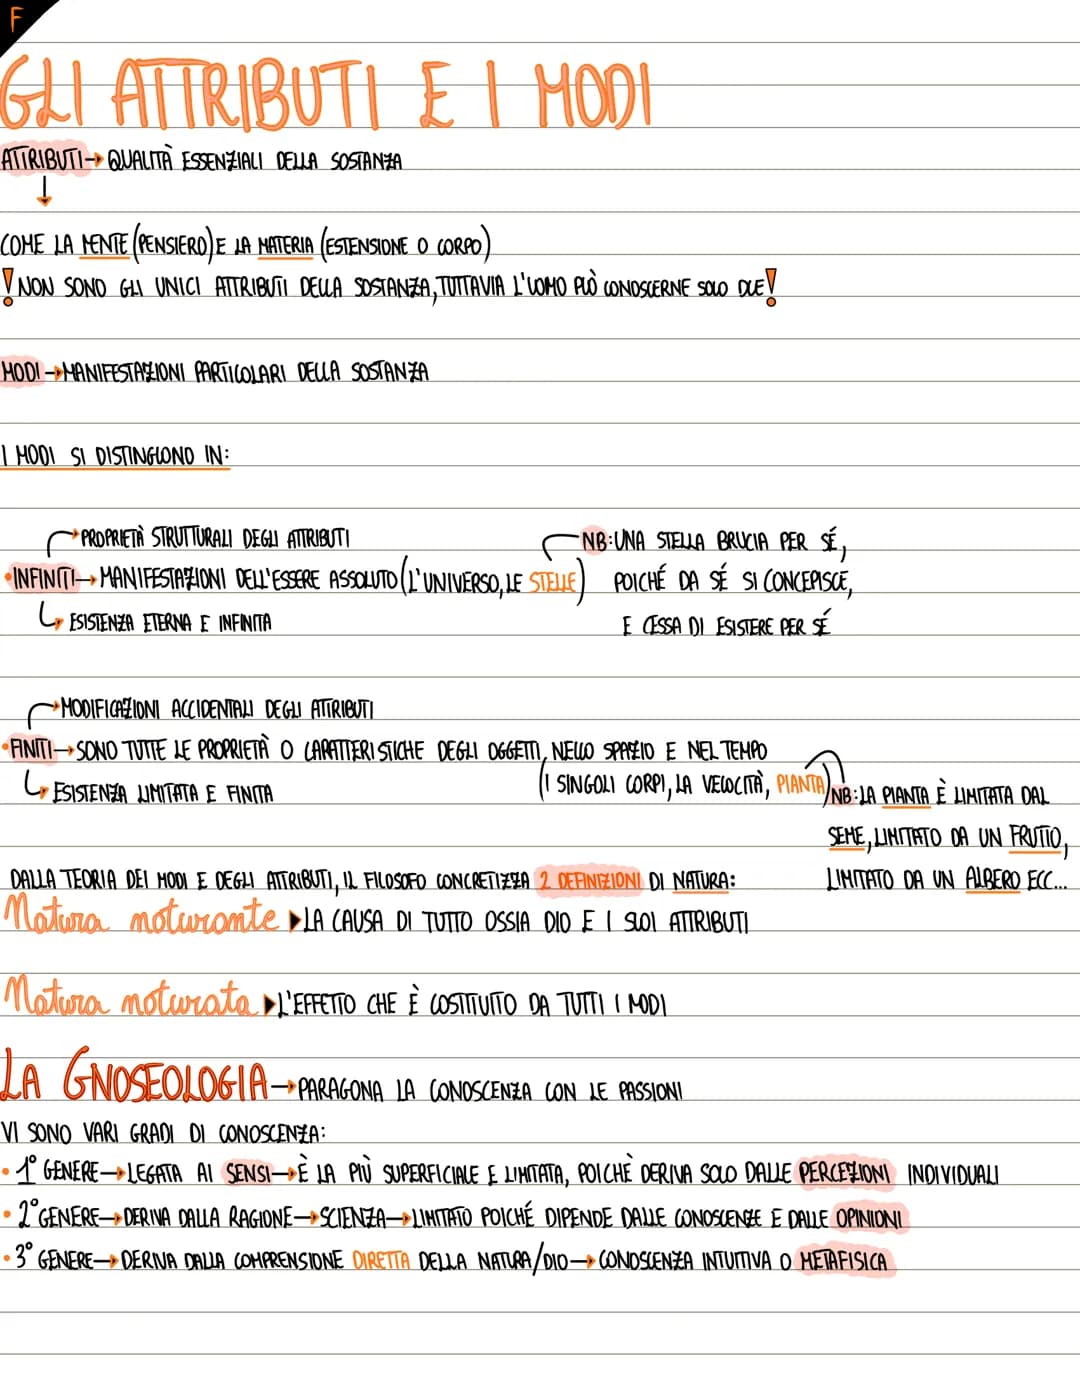 F
GLI ATTRIBUTI E I MODI
ATTRIBUTI→QUALITÀ ESSENZIALI DELLA SOSTANZA
↓
COME LA MENTE (PENSIERO) E LA MATERIA (ESTENSIONE O CORPO)
! NON SONO GLI UNICI ATTRIBUTI DELLA SOSTANZA, TUTTAVIA L'UOMO PUÒ CONOSCERNE SOLO DUE!
MODI→MANIFESTAZIONI PARTICOLARI DELLA SOSTANZA
I MODI SI DISTINGUONO IN:
→PROPRIETÀ STRUTTURALI DEGLI ATTRIBUTI
•INFINITI→MANIFESTAZIONI DELL'ESSERE ASSOLUTO (L'UNIVERSO, LE STELLE)
↳ ESISTENZA ETERNA E INFINITA
NB: UNA STELLA BRUCIA PER SÉ,
POICHÉ DA SÉ SI CONCEPISCE,
E CESSA DI ESISTERE PER SÉ
→MODIFICAZIONI ACCIDENTALI DEGLI ATTRIBUTI
•FINITI→SONO TUTTE LE PROPRIETÀ O CARATTERISTICHE DEGLI OGGETTI, NELLO SPAZIO E NEL TEMPO
(I SINGOLI CORPI, LA VELOCITÀ, PIANTA)
↳ ESISTENZA LIMITATA E FINITA
NB: LA PIANTA È LIMITATA DAL
SEME, LIMITATO DA UN FRUTTO,
LIMITATO DA UN ALBERO ECC...
DALLA TEORIA DEI MODI E DEGLI ATTRIBUTI, IL FILOSOFO CONCRETIZZA 2 DEFINIZIONI DI NATURA:
Natura naturante ▸LA CAUSA DI TUTTO OSSIA DIO E I SUOI ATTRIBUTI
Natura naturata ▸L'EFFETTO CHE È COSTITUITO DA TUTTI I MODI
LA GNOSEOLOGIA→PARAGONA LA CONOSCENZA CON LE PASSIONI
VI SONO VARI GRADI DI CONOSCENZA:
• 1° GENERE→LEGATA AI SENSI→È LA PIÙ SUPERFICIALE E LIMITATA, POICHÈ DERIVA SOLO DALLE PERCEZIONI INDIVIDUALI
• 2° GENERE→DERIVA DALLA RAGIONE→SCIENZA→LIMITATO POICHÉ DIPENDE DALLE CONOSCENZE E DALLE OPINIONI
• 3° GENERE→DERIVA DALLA COMPRENSIONE DIRETTA DELLA NATURA/DIO→CONOSCENZA INTUITIVA O METAFISICA